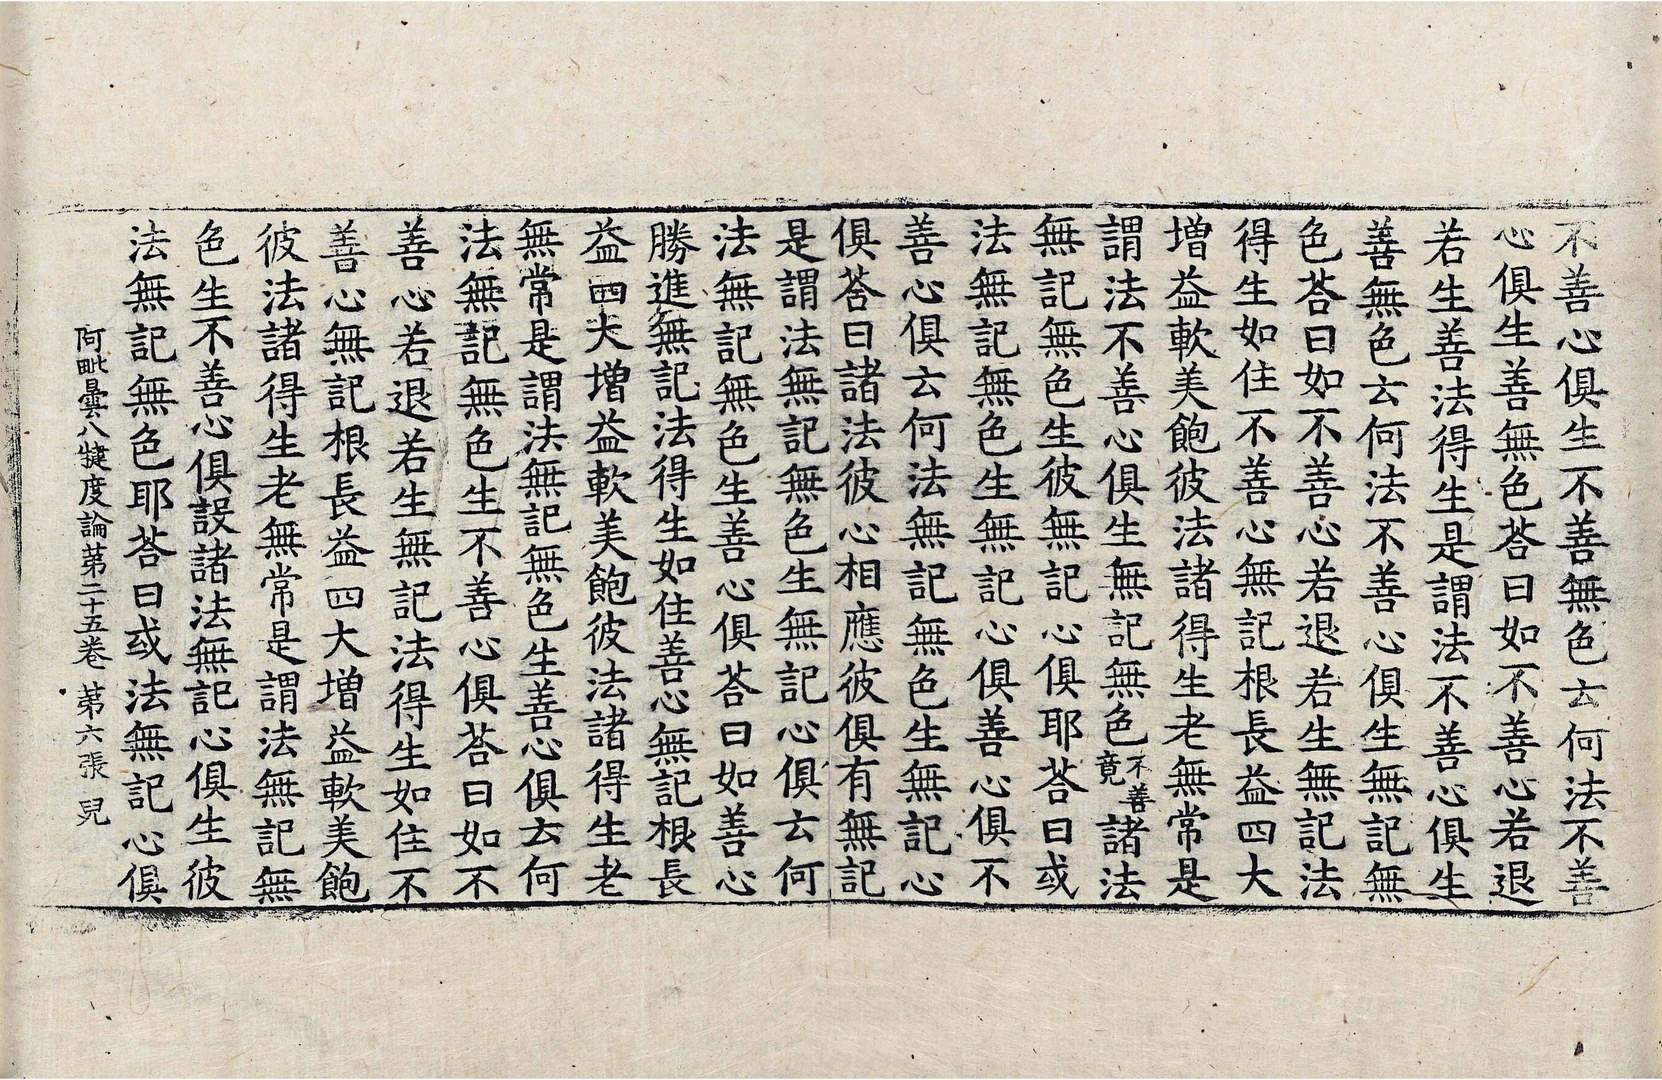 不善心俱生不善無色云何法不善
心俱生善無色荅曰如不善心若退
若生善法得生是謂法不善心俱生
善無色云何法不善心俱生無記無
色荅曰如不善心若退若生無記法
得生如住不善心無記根長益四大
増益軟美飽彼法諸得生老無常是
謂法不善心俱生無記無色不善竟諸法
無記無色生彼無記心俱耶荅曰或
法無記無色生無記心俱善心俱不
善心俱云何法無記無色生無記心
俱荅曰諸法彼心相應彼俱有無記
是謂法無記無色生無記心俱云何
法無記無色生善心俱荅曰如善心
勝進無記法得生如住善心無記根長
益四大増益軟美飽彼法諸得生老
無常是謂法無記無色生善心俱云何
法無記無色生不善心俱荅曰如不
善心若退若生無記法得生如住不
善心無記根長益四大増益軟美飽
彼法諸得生老無常是謂法無記無
色生不善心俱設諸法無記心俱生彼
法無記無色耶荅曰或法無記心俱
阿毗曇八犍度論第二十五卷 第六張 兒